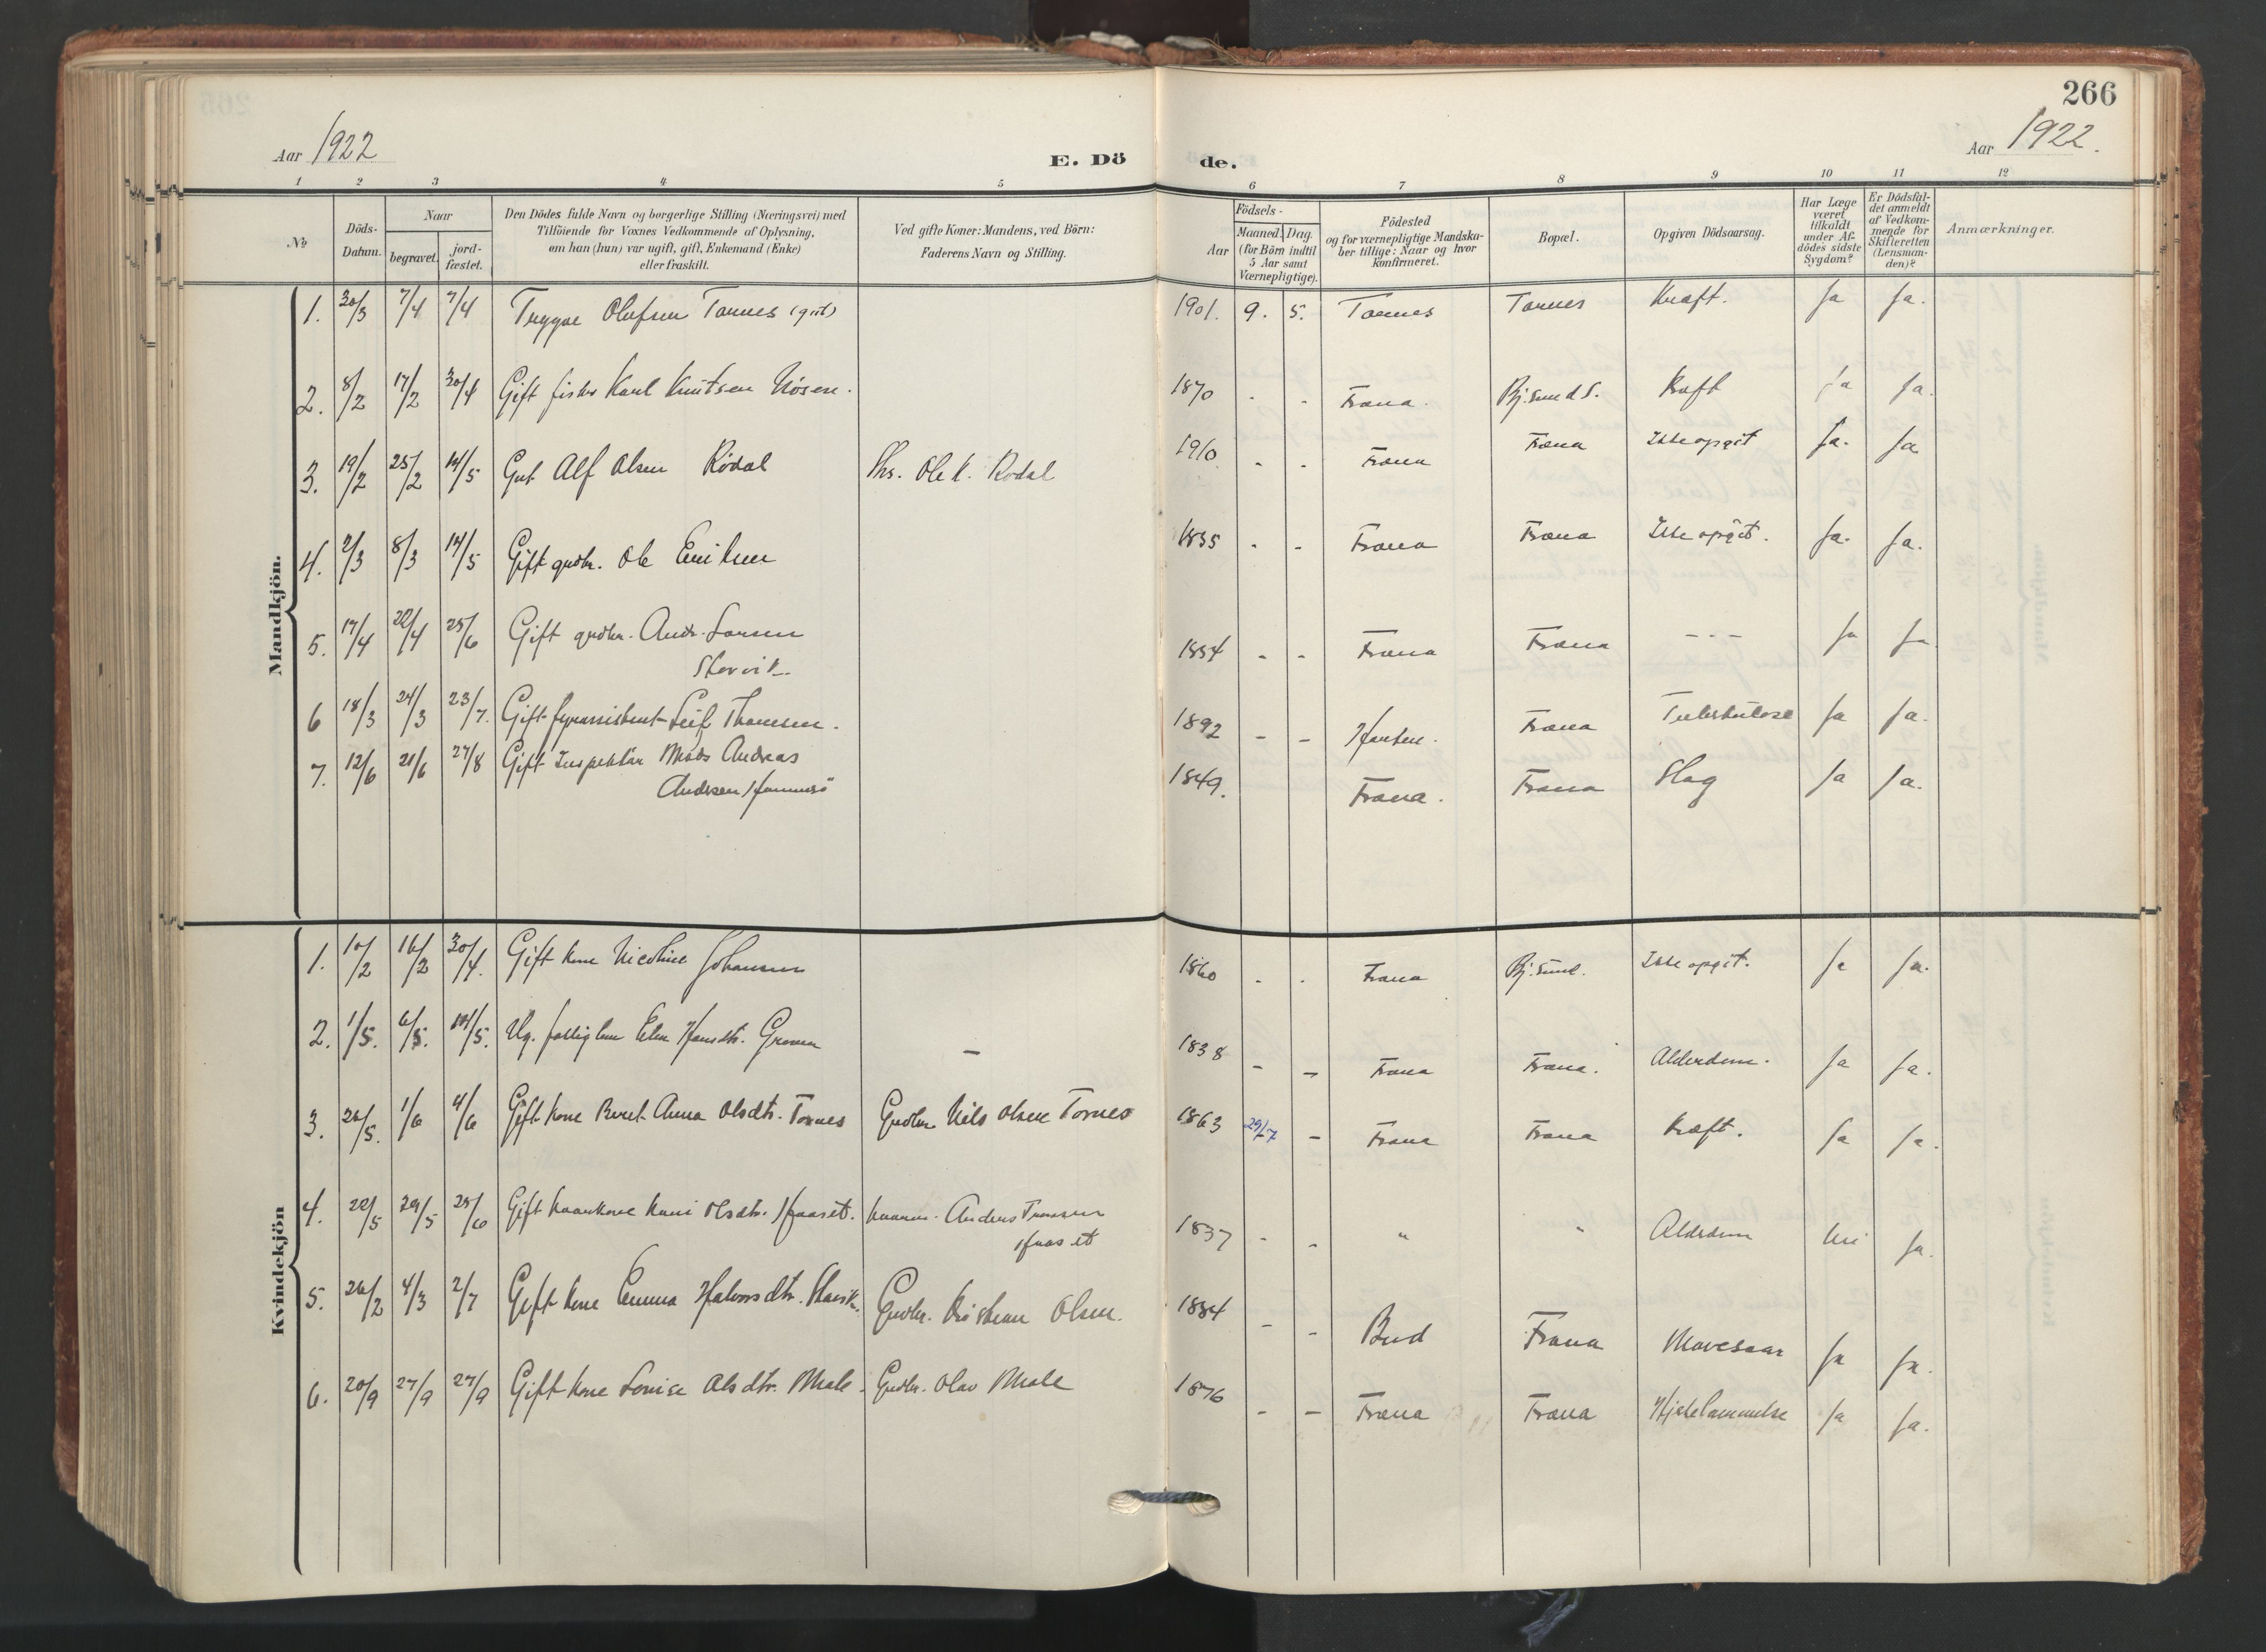 266
Aar 1922
E. Dö de.
Aar 1922.
1 2 3 4 5 6 7 8 9 10 11 12
№
Döds-Datum.
Naar
begravet.
jord-fæstet.
Den Dödes fulde Navn og borgerlige Stilling (Næringsvei) med
Tilföiende for Voxnes Vedkommende af Oplysning,
om han (hun) var ugift, gift, Enkemand (Enke)
eller fraskilt.
Ved gifte Koner: Mandens, ved Börn:
Faderens Navn og Stilling.
Födsels-
Aar
Maaned. Dag.
(for Börn indtil
5 Aar samt
Værnepligtige).
Födested
og for værnepligtige Mandska-
ber tillige: Naar og hvor
konfirmeret.
Bopæl.
Opgiven Dödsaarsag.
Har Læge
været
tilkaldt
under Af-
dödes sidste
Sygdom?
Er Dödsfal-
det anmeldt
af Vedkom-
mende for
Skifteretten
(Lensman-
den)?
Anmærkninger.
Mandkjön.
1. 30/3 7/4 7/4 Trygve Olufsen Tornes 1901. 9. 5. Tornes Tornes Kræft. Ja Ja.
2. 8/2 17/2 30/4 Gift fisker Karl Knutsen 1870 - - Fræna. Bj.sund S. Kræft Ja Ja.
3. 19/2 25/2 14/5 Gut Alf Olsen Rødal Ole K. Rødal 1910 - - Fræna Fræna Ikke opgit Ja. Ja
4. 2/3 8/3 14/5 Gift grdbr. Ole Eriksen 1835 - - Fræna Fræna Ikke opgit. Ja. Ja.
5. 17/4 22/4 25/6 Gift grdbr. Andr. Larsen
Storvik 1854 - - Fræna Fræna - - - Ja Ja
6 18/3 24/3 23/7. Gift fyrassistent Leif Thomesen. 1892 - - Fræna Tuberkulose Ja Ja.
7. 12/6 21/6 27/8 Gift Inspektør Mads Andreas
Andresen 1849. Fræna. Fræna Slag Ja Ja.
Kvindekjön
1. 10/2 16/2 30/4. Gift kone Nicoline Johansen 1860 - - Fræna Bj.sund. Ikke opgit. Ja Ja.
2. 1/5. 6/5. 14/5. Ug. fattiglem Elen Hansdtr. - 1838 - - Fræna Fræna. Alderdom. Ja Ja.
3. 26/5. 1/6 4/6 Gift kone Beret Anna Olsdtr. Tornes Grdbr. Nils Olsen Tornes 1863 29/7 - Fræna Fræna Kræft. Ja Ja.
4. 22/5 29/5 25/6 Gift kaarkone Olsdtr. Haaset. kaarm. Anders
Haaset 1837 - - " " Alderdom Nei Ja.
5. 26/2 4/3 2/7 Gift kone Emma Halvorsdtr. Grdbr. Kristian Olsen. 1884 - - Bud Fræna Mavesaar Ja Ja.
6. 20/9 27/9 27/9 Gift kone Lovise Olsdtr. Male. Grdbr. Olav Male 1876 - - Fræna Fræna Hjertelammelse Ja Ja.